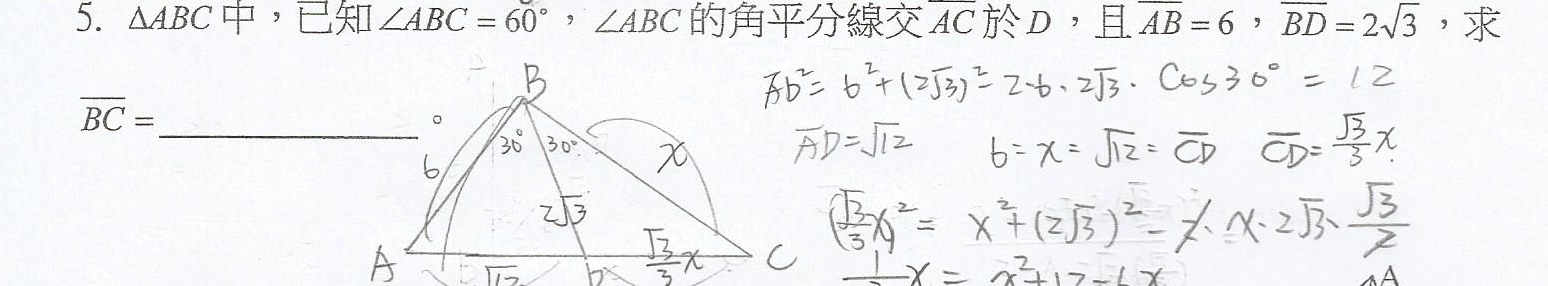 5. ΔABC 中，已知 ∠ABC = 60°，∠ABC 的角平分線交 AC 於 D，且 AB = 6，BD = 2√3，求
BC = ____________。
B
30° 30°
6
x
2√3
A
√12
D
√3/3 x
C
AD² = 6² + (2√3)² - 2·6·2√3·Cos30° = 12
AD = √12 6 : x = √12 : CD CD = √3/3 x
(√3/3 x)² = x² + (2√3)² - 2·x·2√3·√3/2
x = x² + 12 - 6x